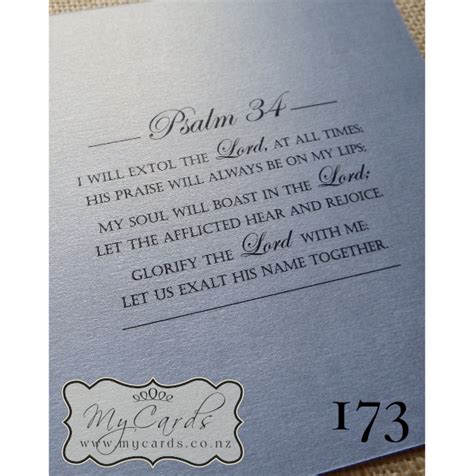 Psalm 34
I WILL EXTOL THE Lord, AT ALL TIMES;
HIS PRAISE WILL ALWAYS BE ON MY LIPS;
MY SOUL WILL BOAST IN THE Lord;
LET THE AFFLICTED HEAR AND REJOICE.
GLORIFY THE Lord WITH ME:
LET US EXALT HIS NAME TOGETHER.
MyCards
www.mycards.co.nz
173